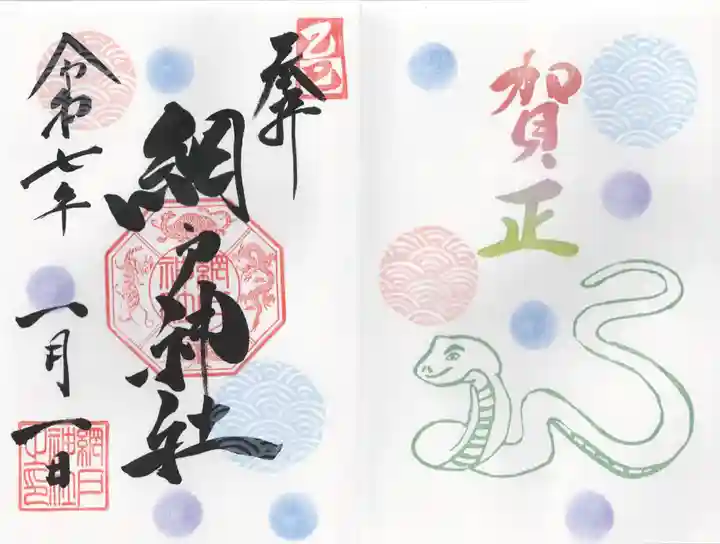 賀正
乙巳
奉拝
網戸神社
網戸神社
令和七年
一月一日
網戸神社之印